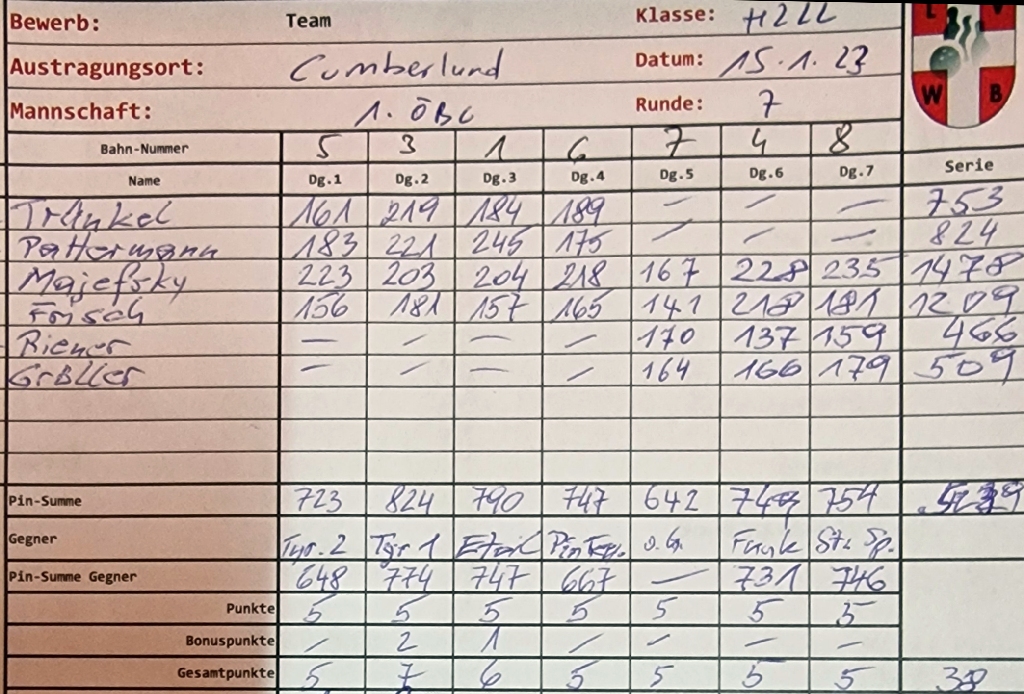 Bewerb: Team Klasse: H2LL
Austragungsort: Cumberlund Datum: 15.1.23
Mannschaft: 1. ÖBC Runde: 7
L V
W B
Bahn-Nummer 5 3 1 6 7 4 8
Name Dg.1 Dg.2 Dg.3 Dg.4 Dg.5 Dg.6 Dg.7 Serie
Tränkel 161 219 184 189 — — — 753
Pattermann 183 221 245 175 — — — 824
Majefsky 223 203 204 218 167 228 235 1478
Frisch 156 181 157 165 141 218 181 1209
Riener — — — — 170 137 159 466
Größler — — — — 164 166 179 509
Pin-Summe 723 824 790 747 642 749 754
Gegner Tyr. 2 Tyr 1 o. G. Funk St. Sp.
Pin-Summe Gegner 648 774 747 667 — 731 746
Punkte 5 5 5 5 5 5 5
Bonuspunkte — 2 1 — — — —
Gesamtpunkte 5 7 6 5 5 5 5 38